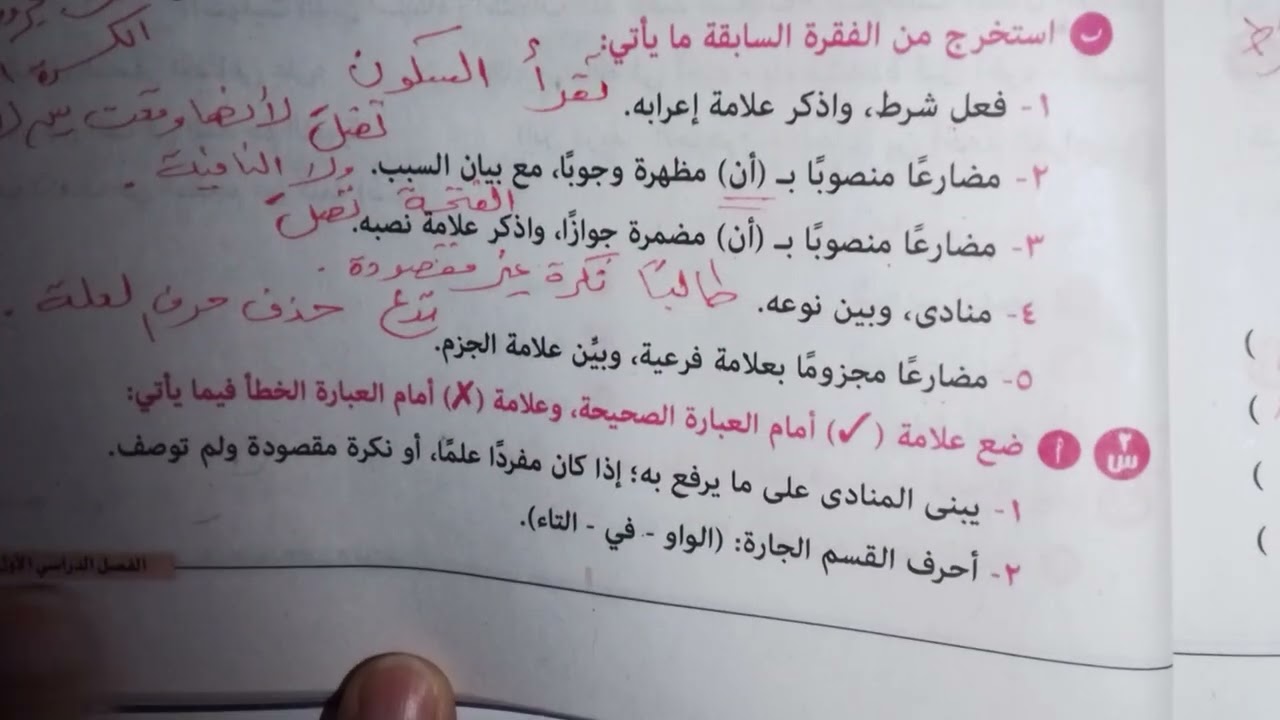 ب استخرج من الفقرة السابقة ما يأتي:
تقرأ السكون
١- فعل شرط، واذكر علامة إعرابه.
تضل لأنها وقعت بين
٢- مضارعًا منصوبًا بـ (أن) مظهرة وجوبًا، مع بيان السبب. ولا النافية.
الفتحة
٣- مضارعًا منصوبًا بـ (أن) مضمرة جوازًا، واذكر علامة نصبه.
طالبًا نكرة غير مقصودة.
٤- منادى، وبين نوعه.
حذف حرف لعلة.
٥- مضارعًا مجزومًا بعلامة فرعية، وبيِّن علامة الجزم.
س٢ أ ضع علامة (✓) أمام العبارة الصحيحة، وعلامة (✗) أمام العبارة الخطأ فيما يأتي:
١- يبنى المنادى على ما يرفع به؛ إذا كان مفردًا علمًا، أو نكرة مقصودة ولم توصف.
٢- أحرف القسم الجارة: (الواو - في - التاء).
الفصل الدراسي الأول